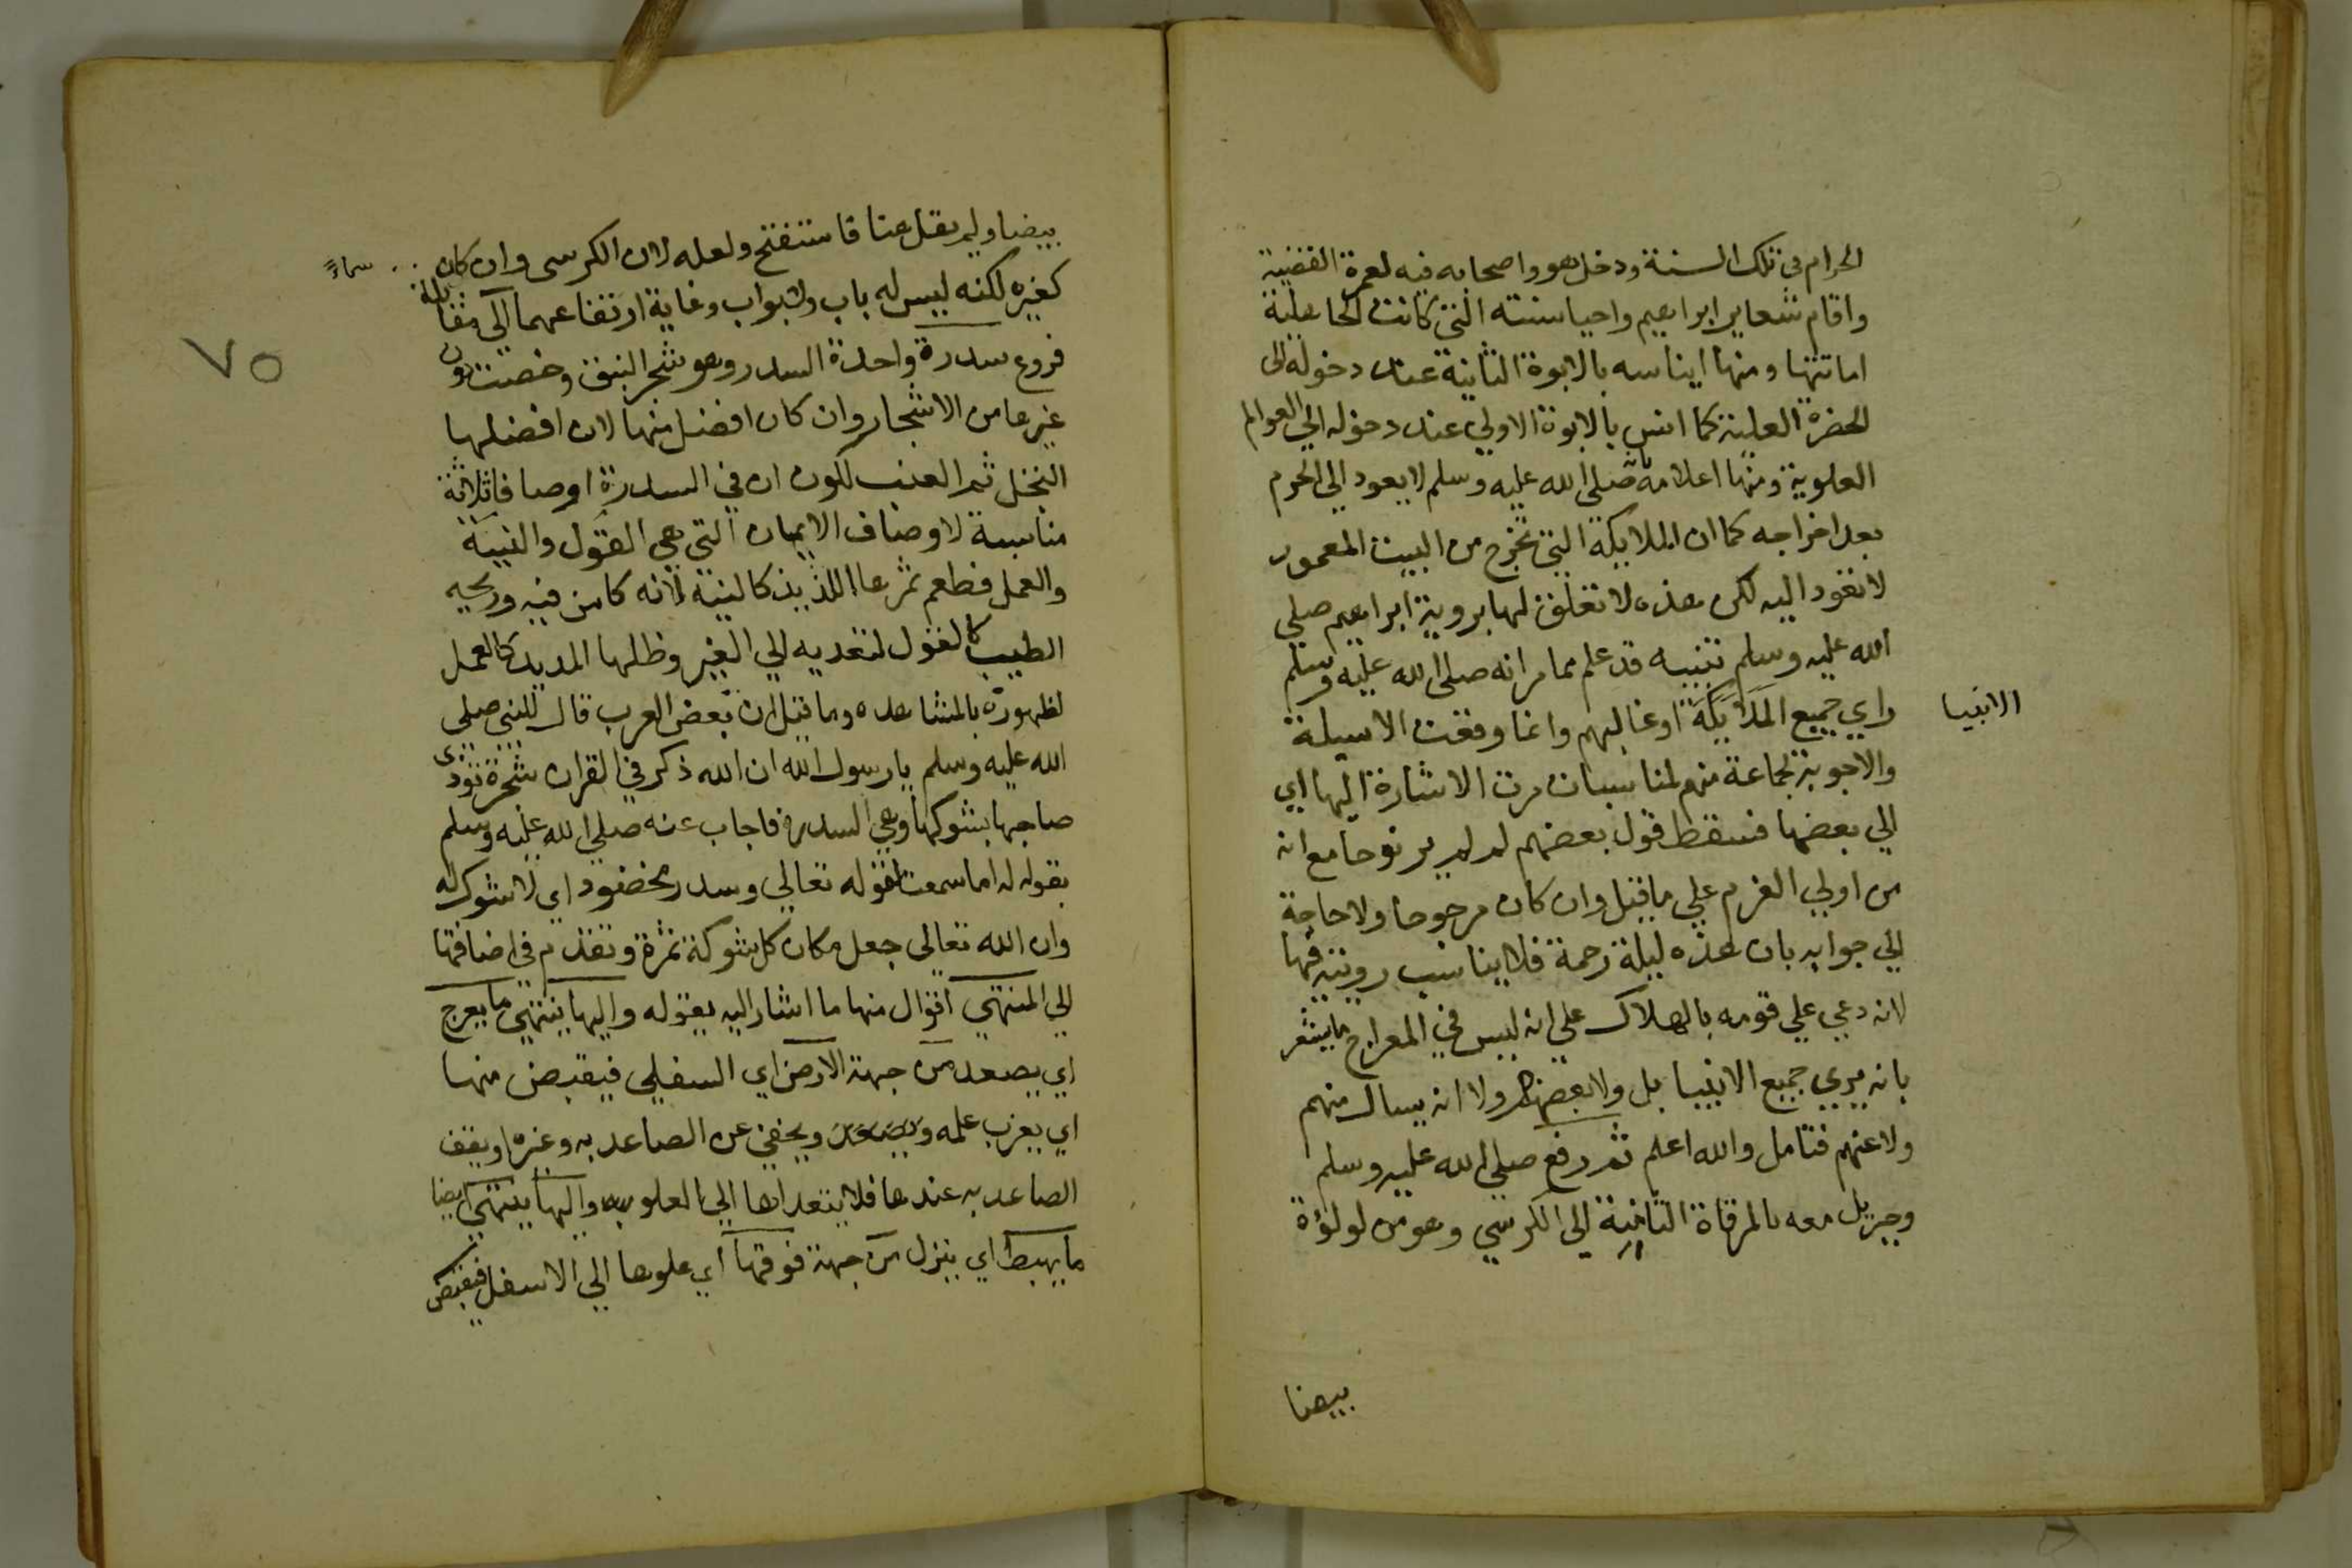 الحرام في تلك السنة ودخل هو واصحابه فيه لعمرة القضية
واقام شعاير ابراهيم واحيا سنته التي كانت الجاهلية
اماتتها ومنها ايناسه بالابوة الثانية عند دخوله الى
الحضرة العلية كما انس بالابوة الاولي عند دخوله الي العوالم
العلوية ومنها اعلامه صلي الله عليه وسلم لا يعود الي الحرم
بعد اخراجه كما ان الملايكة التي تخرج من البيت المعمور
لا تعود اليه لكن هذه لا تعلق لها بروية ابراهيم صلي
الله عليه وسلم تنبيه قد علم مما مر انه صلى الله عليه وسلم
راي جميع الملايكة او غالبهم وانما وقعت الاسيلة
الانبيا
والاجوبة لجماعة منهم لمناسبات مرت الاشارة اليها اي
الي بعضها فسقط قول بعضهم لم لم ير نوحا مع انه
من اولي العزم علي ما قيل وان كان مرجوحا ولا حاجة
الي جوابه بان هذه ليلة رحمة فلا يناسب رويته فيها
لانه دعي علي قومه بالهلاك علي انه ليس في المعراج ما يشعر
بانه يري جميع الانبيا بل ولا بعضهم ولا انه يسال منهم
ولا عنهم فتامل والله اعلم ثم رفع صلي الله عليه وسلم
وجبريل معه بالمرقاة الثامنة الي الكرسي وهو من لولوة
بيضا
٧٥
بيضا ولم يقل هنا فاستفتح ولعله لان الكرسى وان كان
سماء
كغيره لكنه ليس له باب ولا بواب وغاية ارتفاعهما الي مقابلة
فروع سدرة واحدة السدر وهو شجر النبق وخصت دون
غيرها من الاشجار وان كان افضل منها لان افضلها
النخل ثم العنب لكون ان في السدرة اوصافا ثلاثة
مناسبة لاوصاف الايمان التي هي القول والنية
والعمل فطعم ثمرها اللذيذ كالنية لانه كامن فيه وريحه
الطيب كالقول لتعديه الي الغير وظلها المديد كالعمل
لظهوره بالمشاهده وما قيل ان بعض العرب قال للنبي صلى
الله عليه وسلم يا رسول الله ان الله ذكر في القران شجرة تؤذى
صاحبها بشوكها وهي السدرة فاجاب عنه صلي الله عليه وسلم
بقوله له اما سمعت قوله تعالي وسدر مخضود اي لا شوك له
وان الله تعالى جعل مكان كل شوكة ثمرة وتقدم في اضافتها
الي المنتهي اقوال منها ما اشار اليه بقوله واليها ينتهي ما يعرج
اي يصعد من جهة الارض اي السفلي فيقبض منها
اي يعزب علمه ويصعد ويخفي عن الصاعد به وغيره او يقف
الصاعد به عندها فلا يتعداها الي العلو به واليها ينتهي ايضا
ما يهبط اي ينزل من جهة فوقها اي علوها الي الاسفل فيقبض